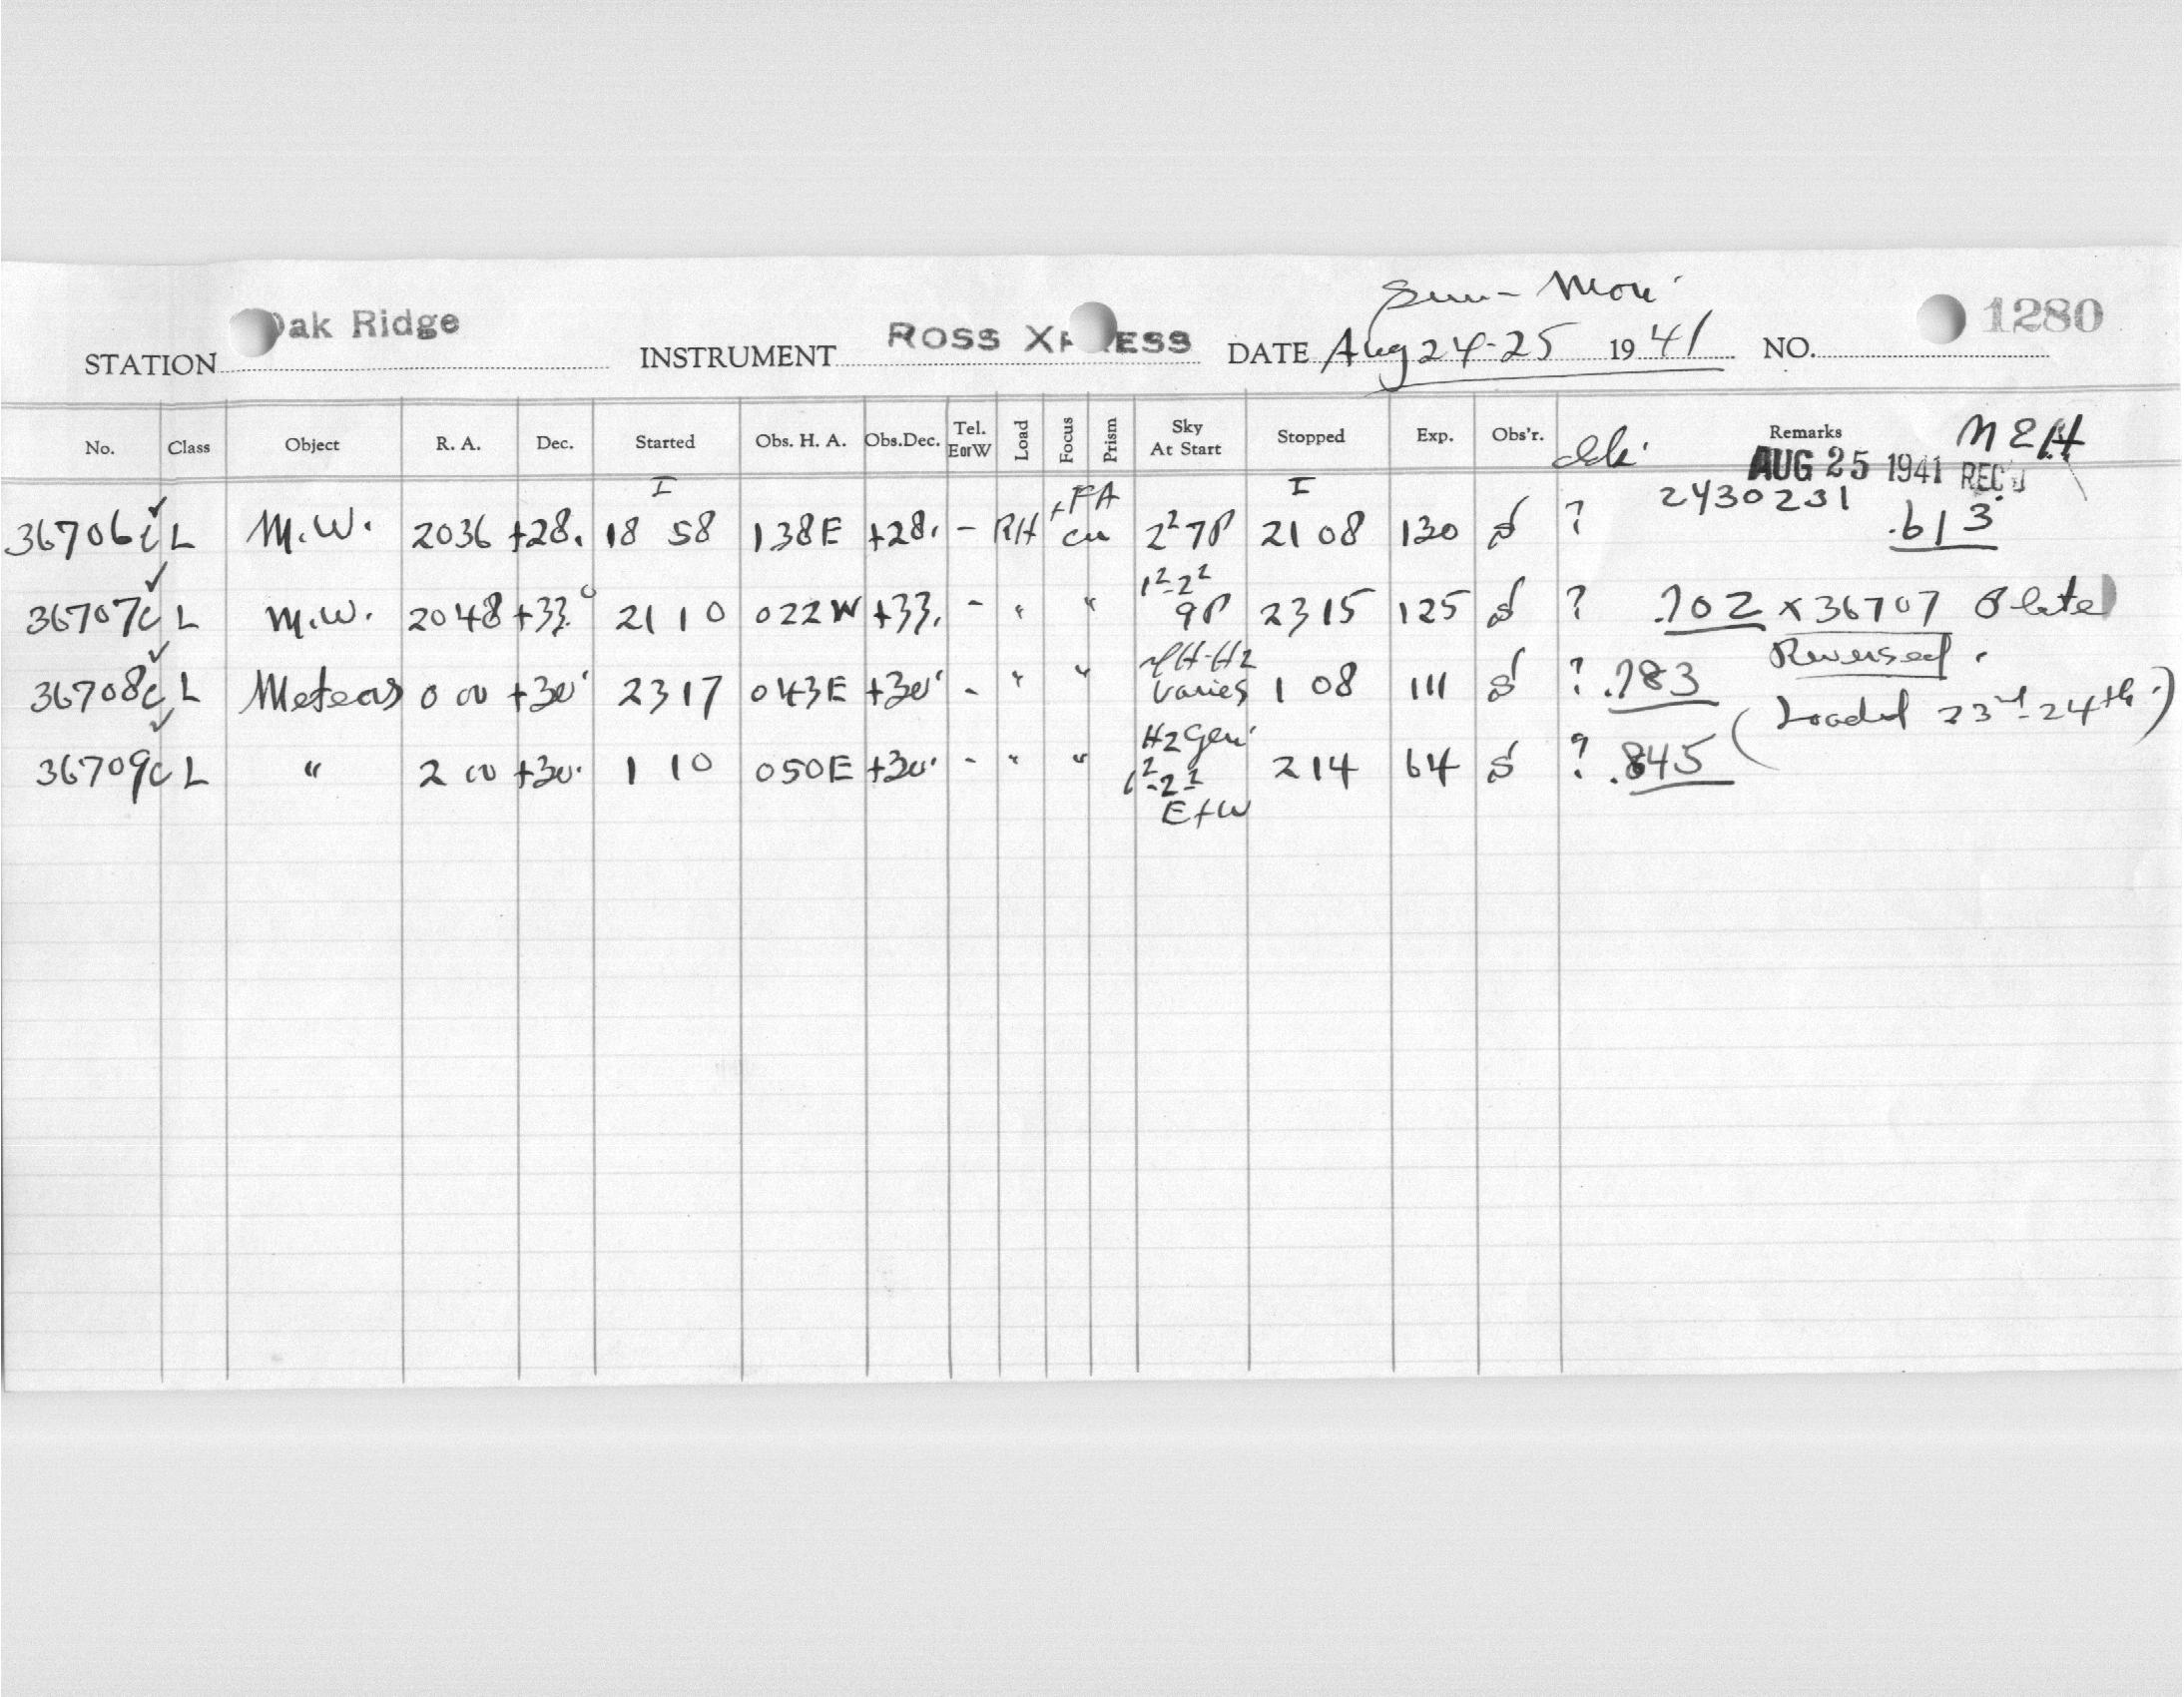 Sun - Mon.
Oak Ridge ROSS XPRESS 1280
STATION INSTRUMENT DATE Aug 24-25 1941 NO.
No. Class Object R. A. Dec. Started Obs. H. A. Obs.Dec. Tel. EorW Load Focus Prism Sky At Start Stopped Exp. Obs'r. Remarks
AUG 25 1941 REC'D
I +FA I 2430231
36706 L M.W. 2036 +28. 18 58 138E +28. - RH 2² 7P 21 08 130 ? .613
36707 L M.W. 2048 +33° 21 10 022W +33. - " " 1²-2² 9P 23 15 125 ? .702 x 36707 Plate
Reversed.
36708 L Meteors 0 00 +30 23 17 043E +30 - " " H-H2 varies 1 08 111 ? .783
(Loaded 23rd-24th.)
36709 L " 2 00 +30 1 10 050E +30 - " " H2 Gen 1²-2² E+W 2 14 64 ? .845